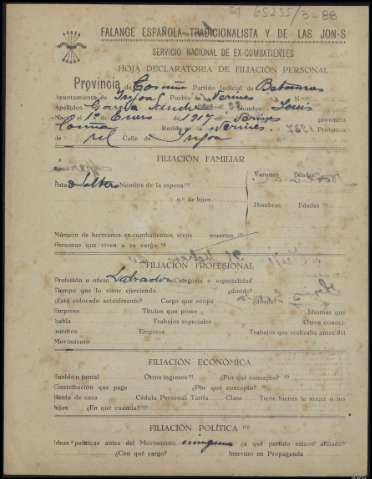 65235/3-88
FALANGE ESPAÑOLA TRADICIONALISTA Y DE LAS JON-S
SERVICIO NACIONAL DE EX-COMBATIENTES
HOJA DECLARATORIA DE FILIACIÓN PERSONAL
Provincia de Coruña Partido Judicial de Betanzos
Ayuntamiento de Irijoa Pueblo
Apellidos García Nombre
N. el 1º Enero 1917 de provincia
Coruña Reside
Calle de Irijoa
FILIACIÓN FAMILIAR
Soltero Nombre de la esposa Varones Edades
nº de hijos
Hembras Edades
Número de hermanos excombatientes vivos muertos
Personas que viven a su cargo
FILIACIÓN PROFESIONAL
Profesión u oficio Labrador Categoría o especialidad
Tiempo que lo viene ejerciendo ¿donde?
¿Está colocado actualmente? Cargo que ocupa ¿donde?
Empresa Títulos que posee Idiomas que
habla Trabajos especiales Otros conoci-
mientos Empresa Trabajos que realizaba antes del
Movimiento
FILIACIÓN ECONÓMICA
Subsidio juntal Otros ingresos ¿Por qué concepto?
Contribución que paga ¿Por qué concepto?
Renta de casa Cédula Personal Tarifa Clase Tiene bienes la mujer o los
hijos ¿En qué cuantía?
FILIACIÓN POLÍTICA
Ideas políticas antes del Movimiento ninguna ¿a qué partido estuvo afiliado?
¿Con qué cargo? Intervino en Propaganda